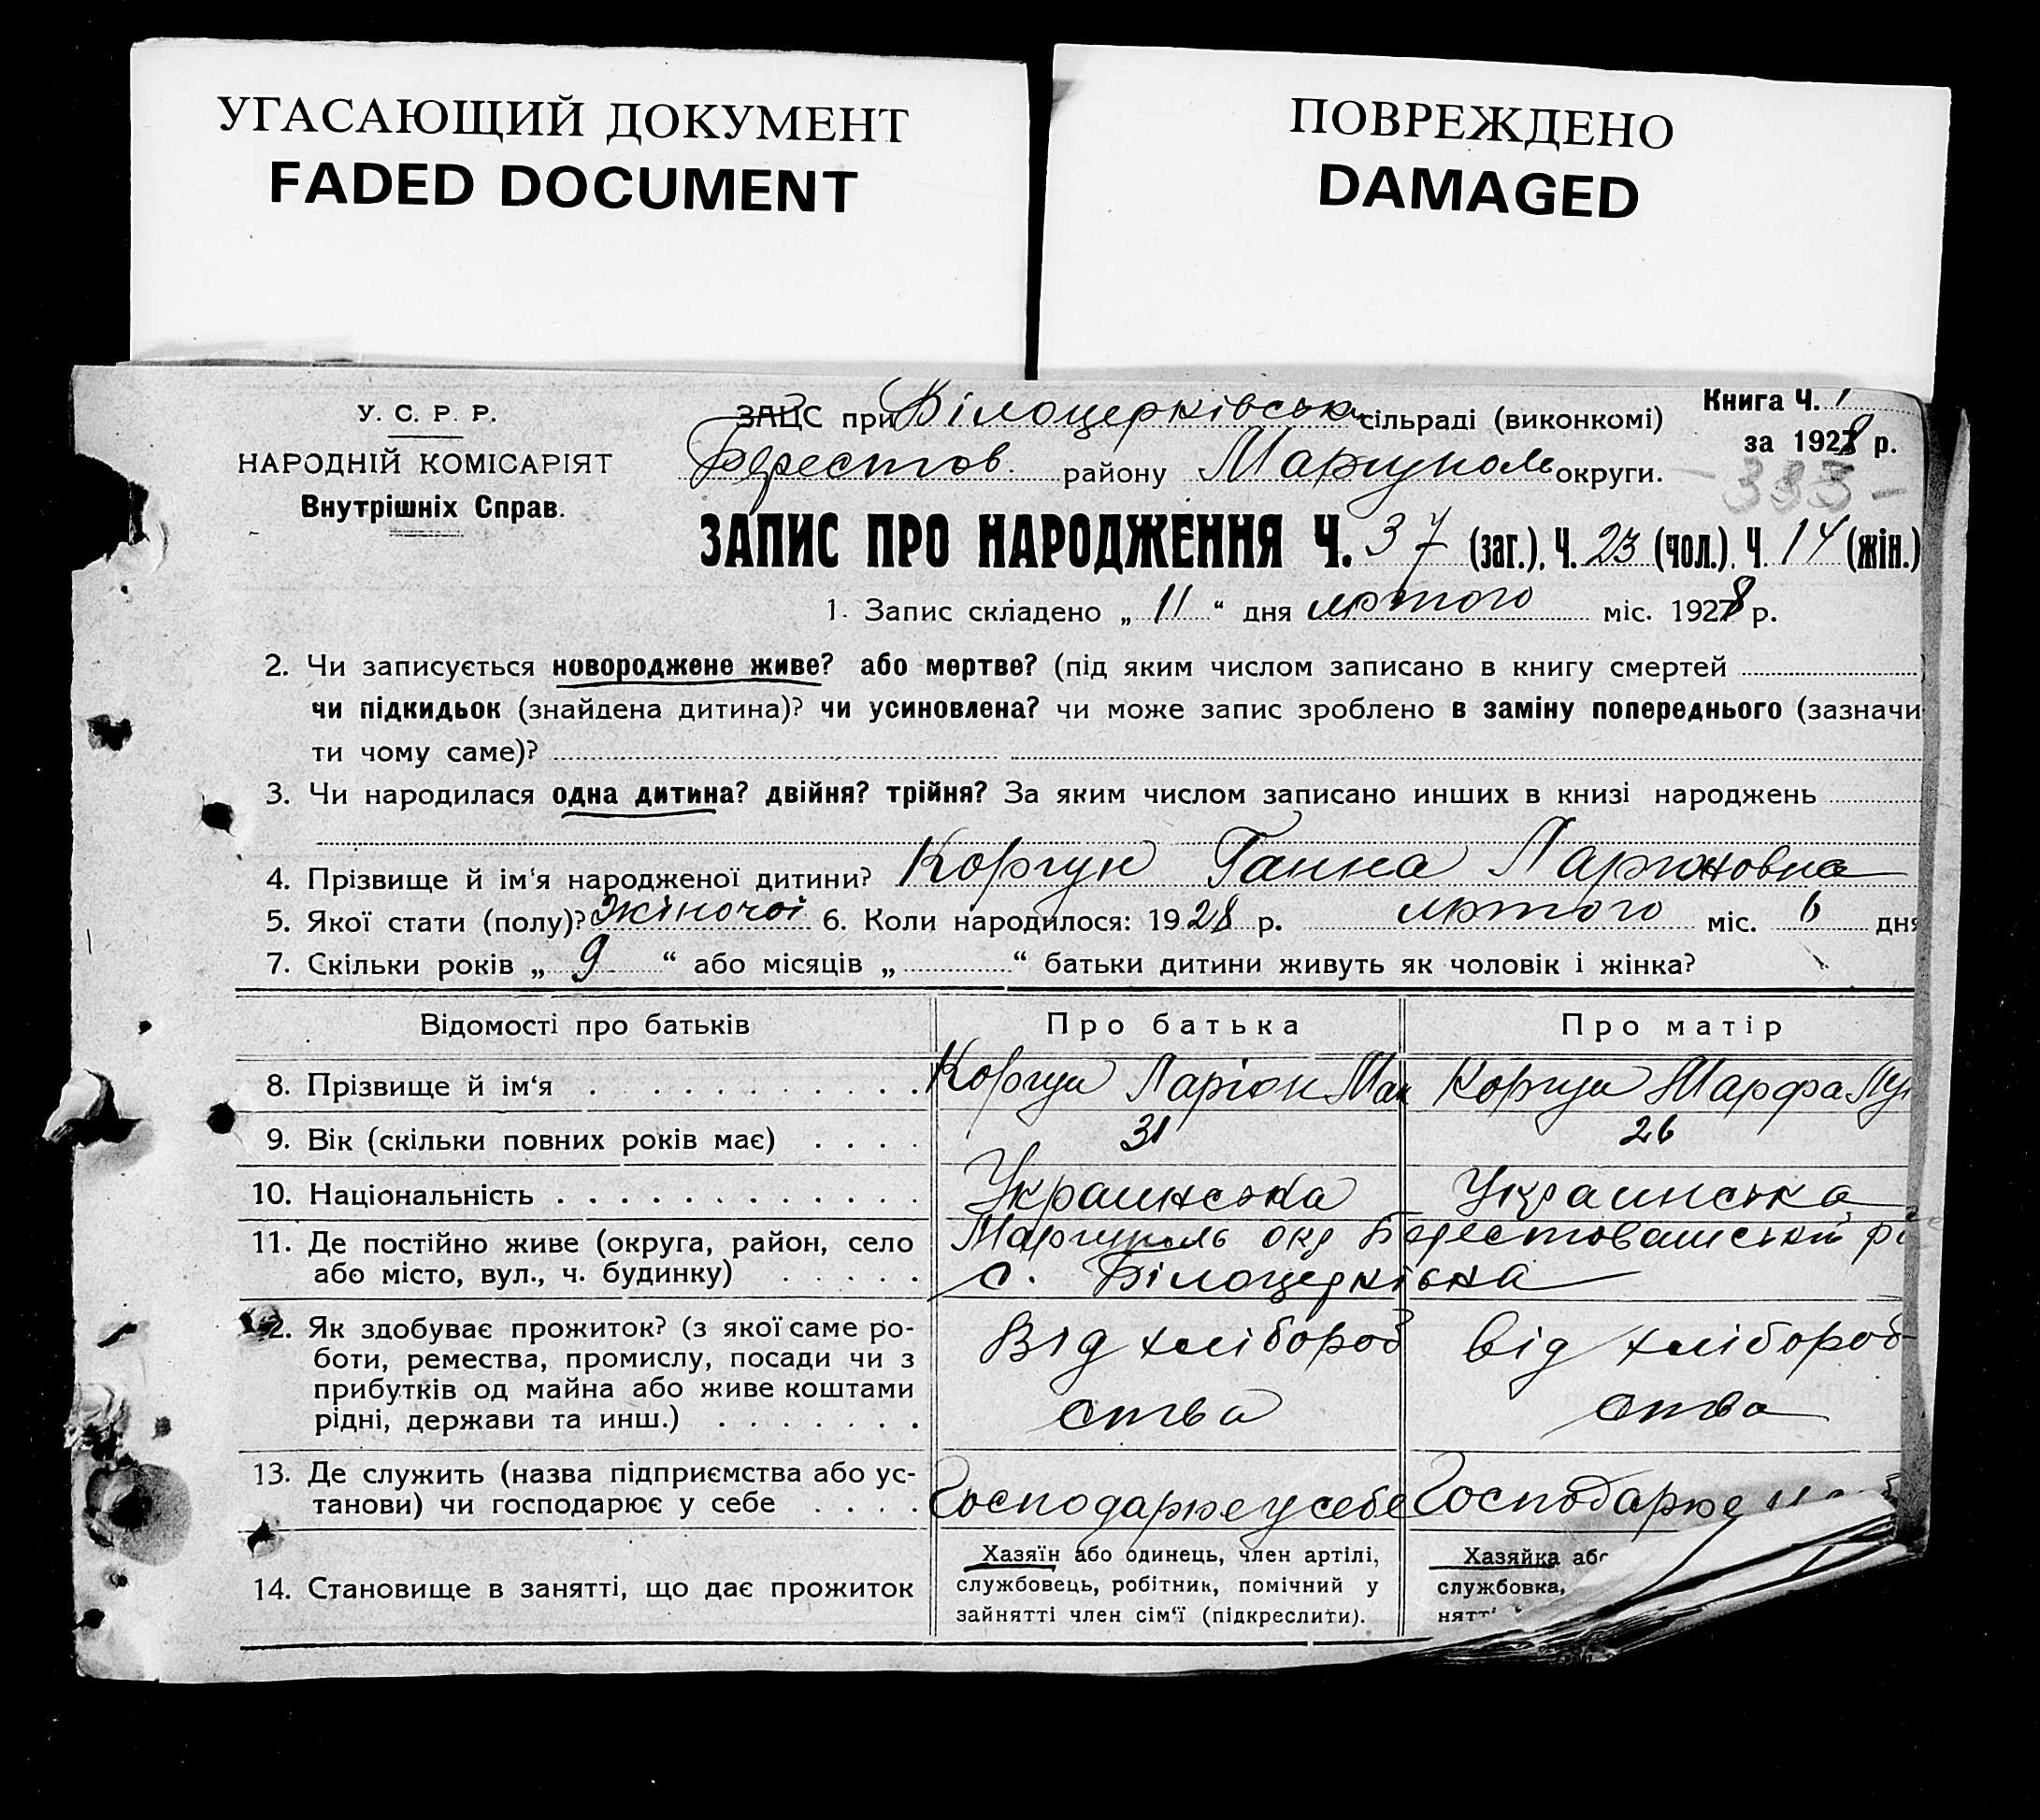 УГАСАЮЩИЙ ДОКУМЕНТ
FADED DOCUMENT
ПОВРЕЖДЕНО
DAMAGED
У. С. Р. Р.
НАРОДНІЙ КОМІСАРІЯТ
Внутрішніх Справ.
ЗАЦС при Білоцерківськ сільраді (виконкомі)
Берестов. району Маріуполь округи.
Книга Ч. 1
за 1928 р.
- 333 -
ЗАПИС ПРО НАРОДЖЕННЯ Ч. 37 (заг.), Ч. 23 (чол.). Ч. 14 (жін.)
1. Запис складено „ 11 “ дня лютого міс. 1928 р.
2. Чи записується новороджене живе? або мертве? (під яким числом записано в книгу смертей
чи підкидьок (знайдена дитина)? чи усиновлена? чи може запис зроблено в заміну попереднього (зазначи
ти чому саме)?
3. Чи народилася одна дитина? двійня? трійня? За яким числом записано инших в книзі народжень
4. Прізвище й ім'я народженої дитини? Коргун Ганна Ларионовна
5. Якої стати (полу)? Жіночої 6. Коли народилося: 1928 р. лютого міс. 6 дня
7. Скільки років „ 9 “ або місяців „ “ батьки дитини живуть як чоловік і жінка?
Відомості про батьків Про батька Про матір
8. Прізвище й ім'я Коргун Ларіон Мак Коргун Марфа Лук
9. Вік (скільки повних років має) 31 26
10. Національність Украинська Украинська
11. Де постійно живе (округа, район, село Маріуполь окр Берестоваиській р
або місто, вул., ч. будинку) с. Білоцерківка
12. Як здобуває прожиток? (з якої саме ро- Від хлібороб від хлібороб
боти, ремества, промислу, посади чи з
прибутків од майна або живе коштами ства ства
рідні, держави та инш.)
13. Де служить (назва підприємства або ус-
танови) чи господарює у себе Господарює у себе Господарює у
Хазяїн або одинець, член артілі, Хазяйка або
14. Становище в занятті, що дає прожиток службовець, робітник, помічний у службовка,
зайнятті член сім'ї (підкреслити). нятті